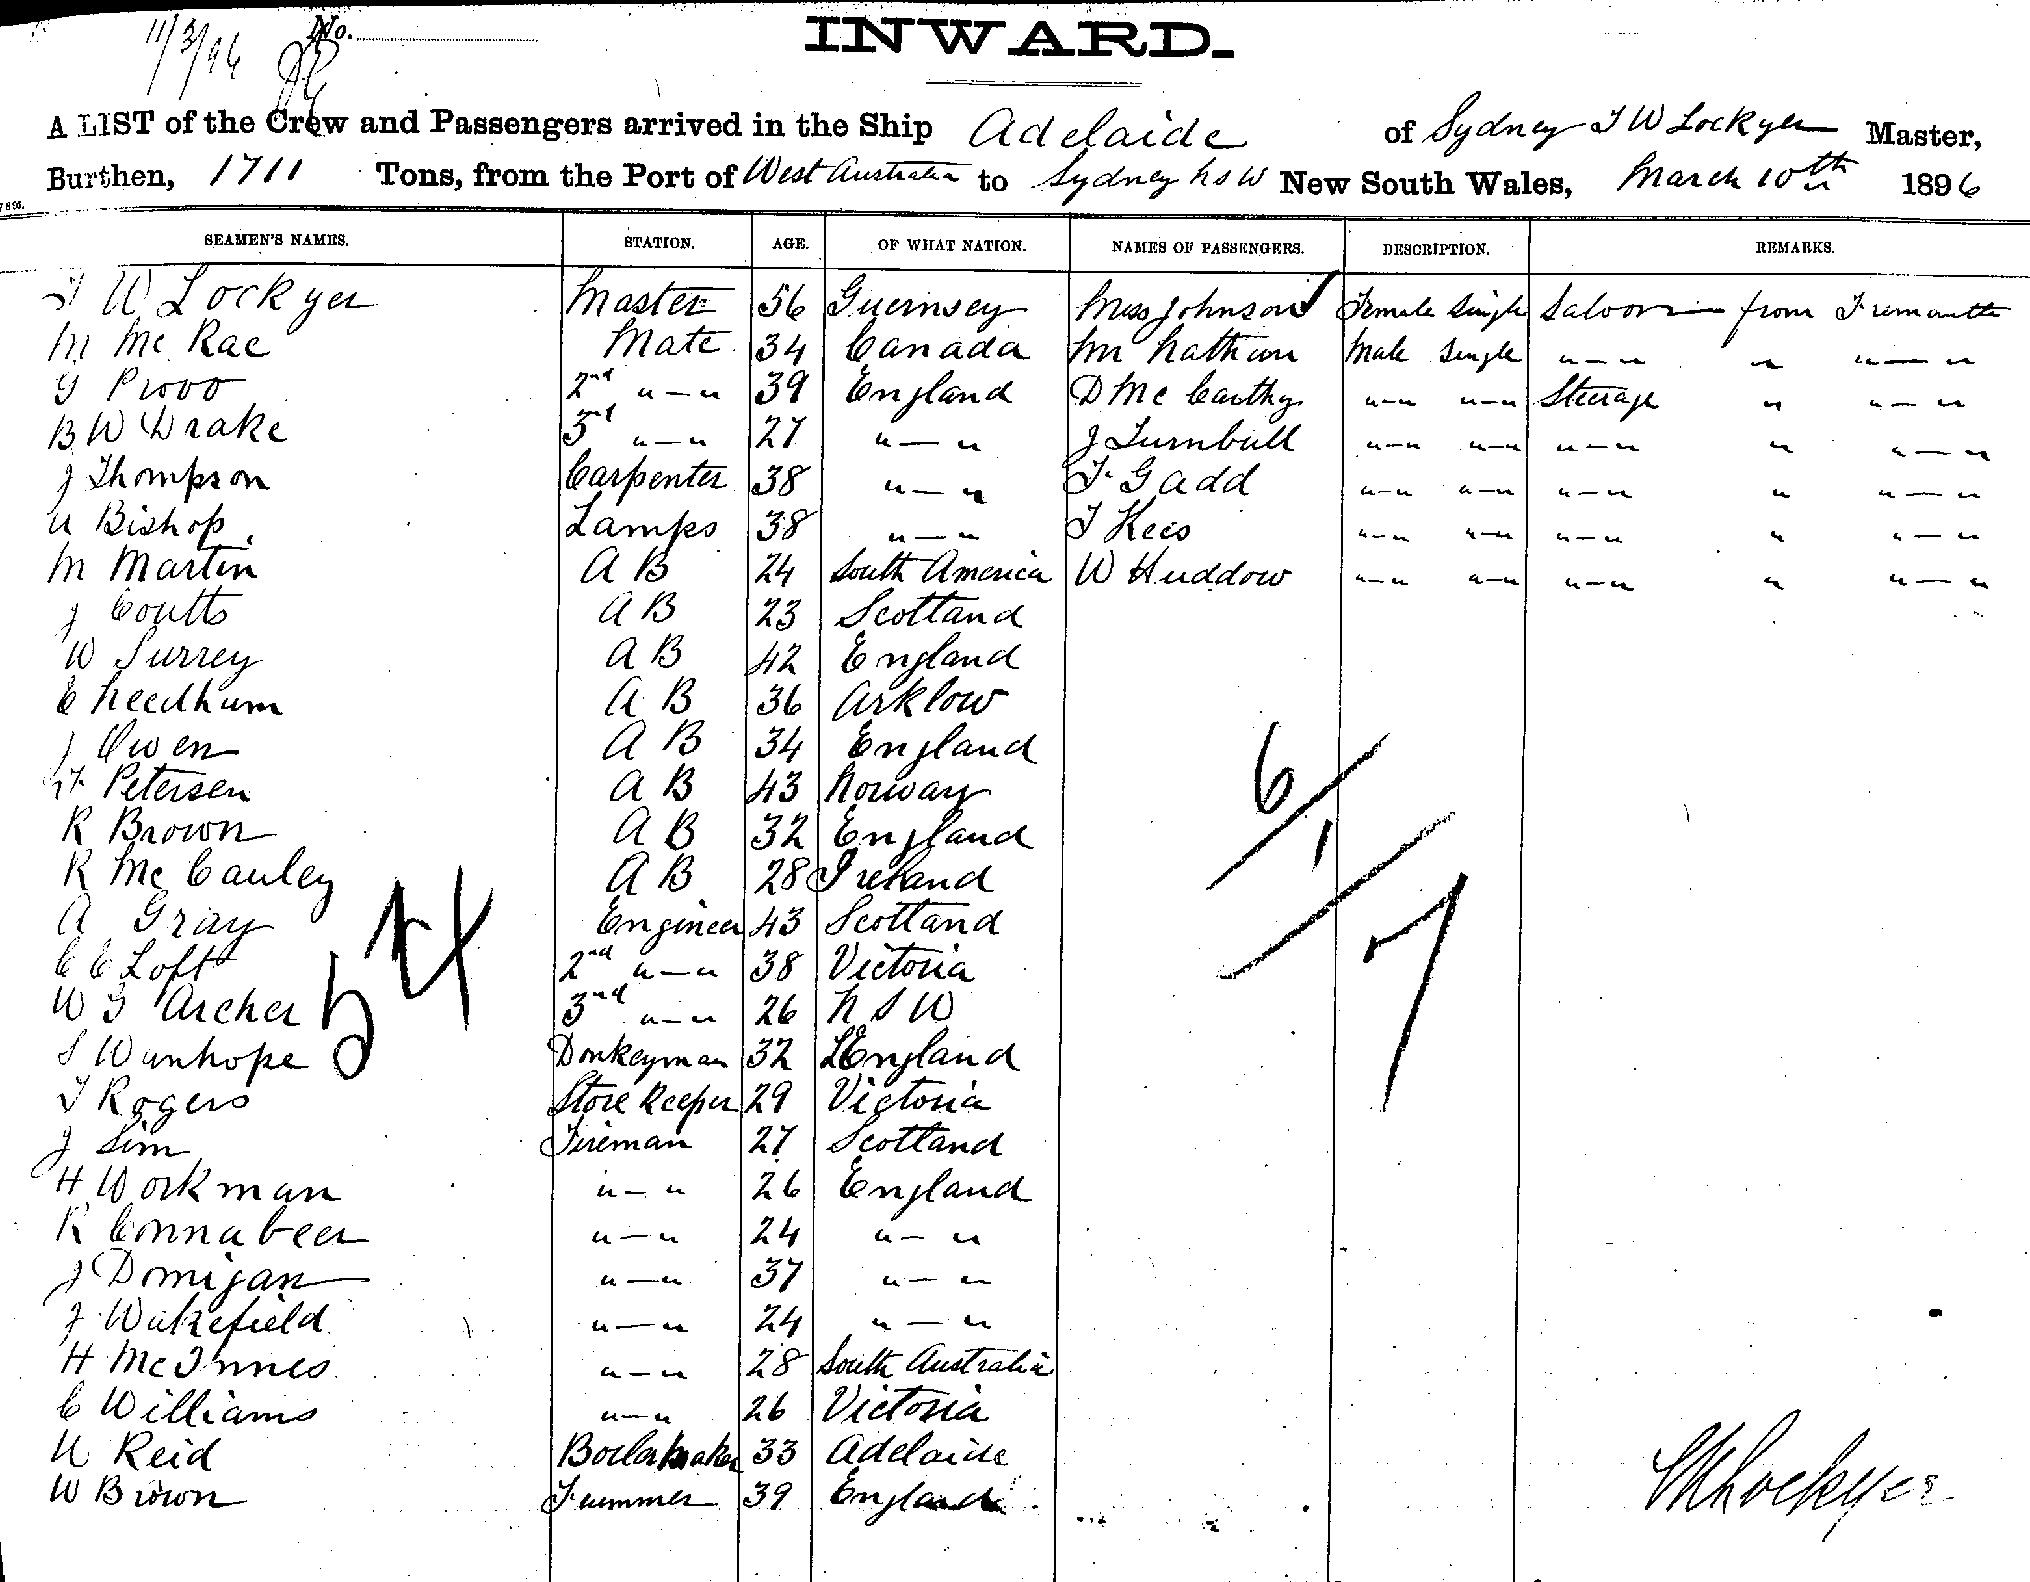 11/3/96
No.
INWARD.
A LIST of the Crew and Passengers arrived in the Ship Adelaide of Sydney T W Lockyer Master,
Burthen, 1711 Tons, from the Port of West Australia to Sydney N S W New South Wales, March 10th 1896
SEAMEN'S NAMES. STATION. AGE. OF WHAT NATION. NAMES OF PASSENGERS. DESCRIPTION. REMARKS.
T W Lockyer Master 56 Guernsey Miss Johnson Female Single Saloon from Fremantle
M McRae Mate 34 Canada Mr Nathan Male Single " — " " " — "
G Provo 2nd " — " 39 England D McCarthy " — " " — " Steerage " " — "
B W Drake 3rd " — " 27 " — " J Turnbull " — " " — " " — " " " — "
J Thompson Carpenter 38 " — " F Gadd " — " " — " " — " " " — "
A Bishop Lamps 38 " — " T Kees " — " " — " " — " " " — "
M Martin A B 24 South America W Huddow " — " " — " " — " " " — "
J Coutts A B 23 Scotland
W Surrey A B 42 England
E Needham A B 36 Arklow
J Owen A B 34 England
Petersen A B 43 Norway
R Brown A B 32 England
R McCauley A B 28 Ireland
A Gray Engineer 43 Scotland
C C Loft 2nd " — " 38 Victoria
W T Archer 3nd " — " 26 N S W
S Wanhope Donkeyman 32 England
T Rogers Store Keeper 29 Victoria
J Sim Fireman 27 Scotland
H Workman " — " 26 England
R Connabeer " — " 24 " — "
J Domigan " — " 37 " — "
J Wakefield " — " 24 " — "
H McInnes " — " 28 South Australia
C Williams " — " 26 Victoria
A Reid Boilermaker 33 Adelaide
W Brown Trimmer 39 England
54
6/1/7
T W Lockyer